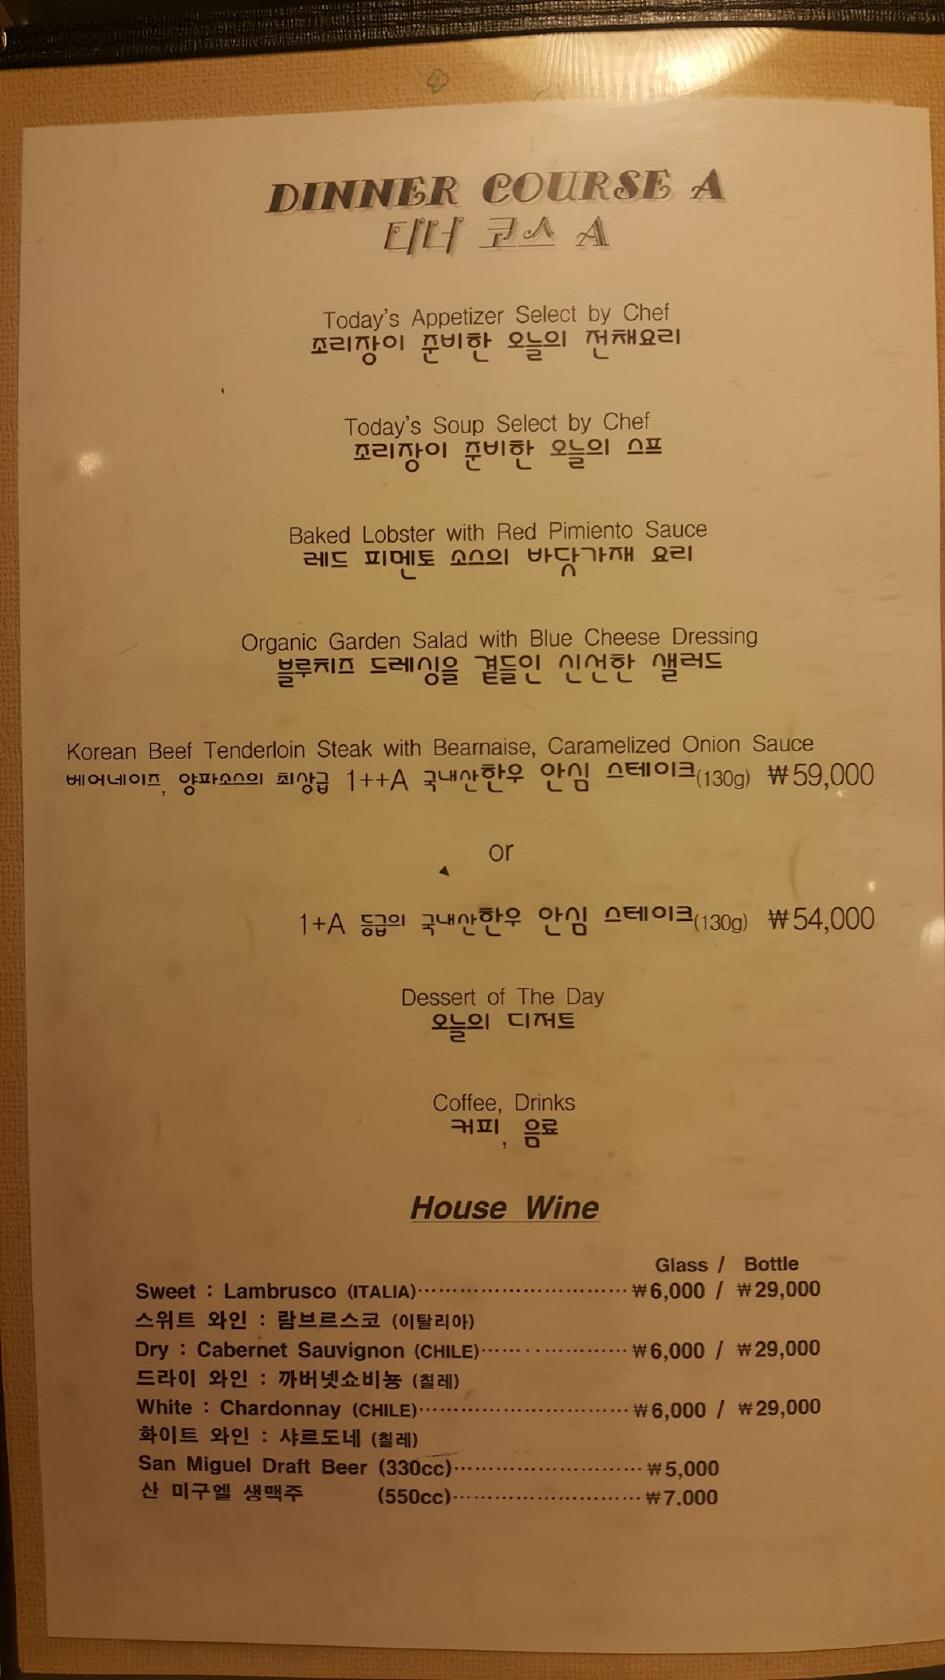 DINNER COURSE A
디너 코스 A
Today's Appetizer Select by Chef
조리장이 준비한 오늘의 전채요리
Today's Soup Select by Chef
조리장이 준비한 오늘의 스프
Baked Lobster with Red Pimiento Sauce
레드 피멘토 소스의 바닷가재 요리
Organic Garden Salad with Blue Cheese Dressing
블루치즈 드레싱을 곁들인 신선한 샐러드
Korean Beef Tenderloin Steak with Bearnaise, Caramelized Onion Sauce
베어네이즈, 양파소스의 최상급 1++A 국내산한우 안심 스테이크(130g) ₩59,000
or
1+A 등급의 국내산한우 안심 스테이크(130g) ₩54,000
Dessert of The Day
오늘의 디저트
Coffee, Drinks
커피, 음료
House Wine
Glass / Bottle
Sweet : Lambrusco (ITALIA)··························₩6,000 / ₩29,000
스위트 와인 : 람브르스코 (이탈리아)
Dry : Cabernet Sauvignon (CHILE)··················₩6,000 / ₩29,000
드라이 와인 : 까버넷쇼비뇽 (칠레)
White : Chardonnay (CHILE)··························₩6,000 / ₩29,000
화이트 와인 : 샤르도네 (칠레)
San Miguel Draft Beer (330cc)························₩5,000
산 미구엘 생맥주 (550cc)························₩7.000